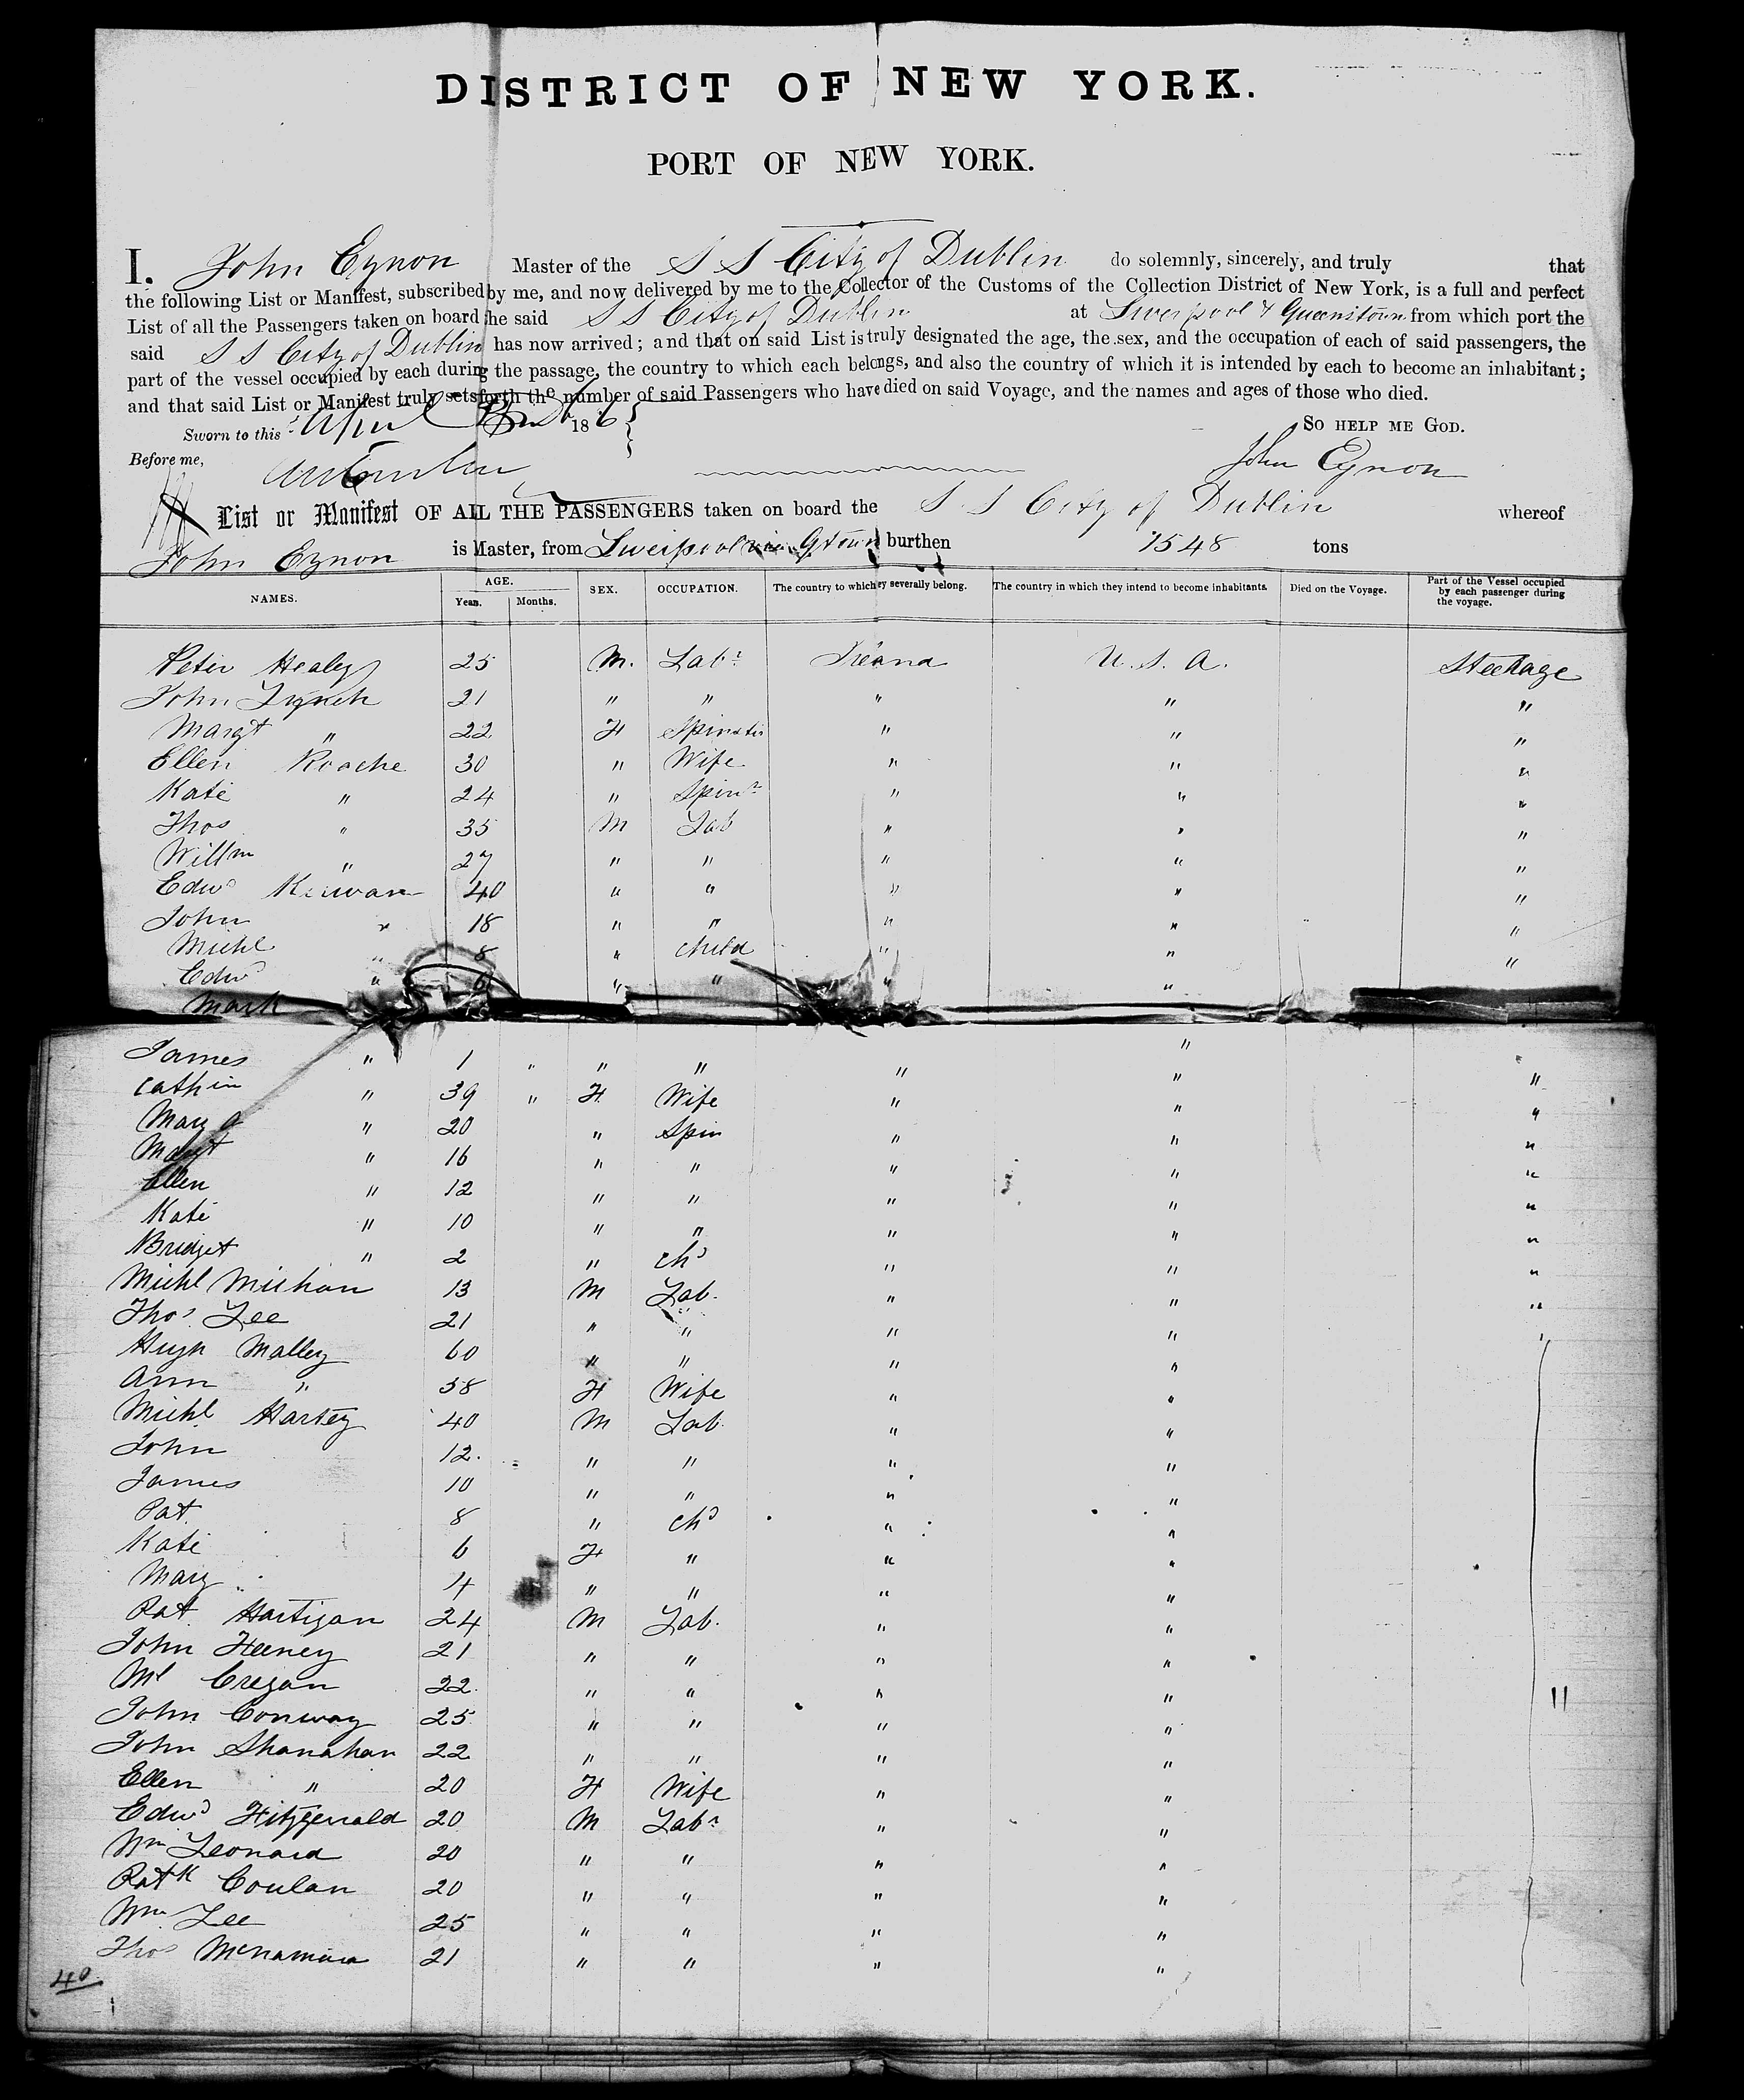 DISTRICT OF NEW YORK.
PORT OF NEW YORK.
I. John Eynon Master of the S S City of Dublin do solemnly, sincerely, and truly that
the following List or Manifest, subscribed by me, and now delivered by me to the Collector of the Customs of the Collection District of New York, is a full and perfect
List of all the Passengers taken on board the said S S City of Dublin at Liverpool & Queenstown from which port the
said S S City of Dublin has now arrived; and that on said List is truly designated the age, the sex, and the occupation of each of said passengers, the
part of the vessel occupied by each during the passage, the country to which each belongs, and also the country of which it is intended by each to become an inhabitant;
and that said List or Manifest truly sets forth the number of said Passengers who have died on said Voyage, and the names and ages of those who died.
Sworn to this April 186 SO HELP ME GOD.
Before me, John Eynon
List or Manifest OF ALL THE PASSENGERS taken on board the S S City of Dublin whereof
John Eynon is Master, from Liverpool via Qtown burthen 1548 tons
NAMES. AGE. Years. Months. SEX. OCCUPATION. The country to which they severally belong. The country in which they intend to become inhabitants. Died on the Voyage. Part of the Vessel occupied by each passenger during the voyage.
Peter Healey 25 M. Labr Ireand U. S. A. Steerage
John Lynch 21 " " " " "
Margt " 22 F Spinster " " "
Ellen Roache 30 " Wife " " "
Kate " 24 " Spinr " " "
Thos " 35 M Lab " " "
Willm " 27 " " " " "
Edwd Kirwan 40 " " " " "
John " 18 " " " " "
Michl " 8 " child " " "
Edwd " 6 " " " "
Mark
James " 1 " " " " "
Cathin " 39 " F Wife " " "
Mary A " 20 " Spin " " "
Margt " 16 " " " " "
Ellen " 12 " " " " "
Kate " 10 " " " " "
Bridget " 2 " chd " " "
Michl Michan 13 M Lab. " " "
Thos Lee 21 " " " " "
Hugh Malley 60 " " " "
Ann " 58 F Wife " "
Michl Hartey 40 M Lab " "
John 12. " " " "
James 10 " " " "
Pat 8 " chd " "
Kate 6 F " " "
Mary 4 " " " "
Pat Hartigan 24 M Lab. " "
John Feeney 21 " " " "
Ml Cregan 22. " " " " "
John Conway 25 " " " "
John Shanahan 22 " " " "
Ellen " 20 F Wife " "
Edwd Fitzgerald 20 M Labr " "
Wm Leonard 20 " " " "
Patk Coulan 20 " " " "
Wm Lee 25 " " " "
Thos McNamara 21 " " " "
40